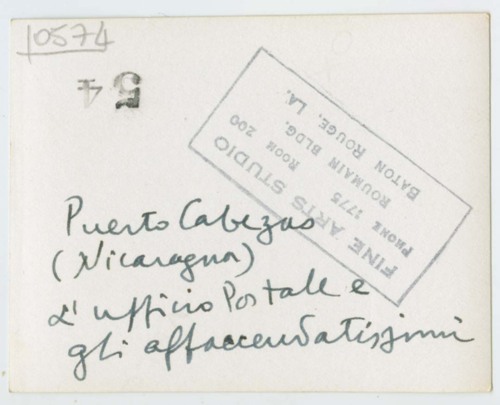 10574
54
FINE ARTS STUDIO
ROOM 200
ROUMAIN BLDG.
PHONE 1775
BATON ROUGE, LA.
Puerto Cabezas
(Nicaragua)
L'ufficio Postale e
gli affaccendatissimi